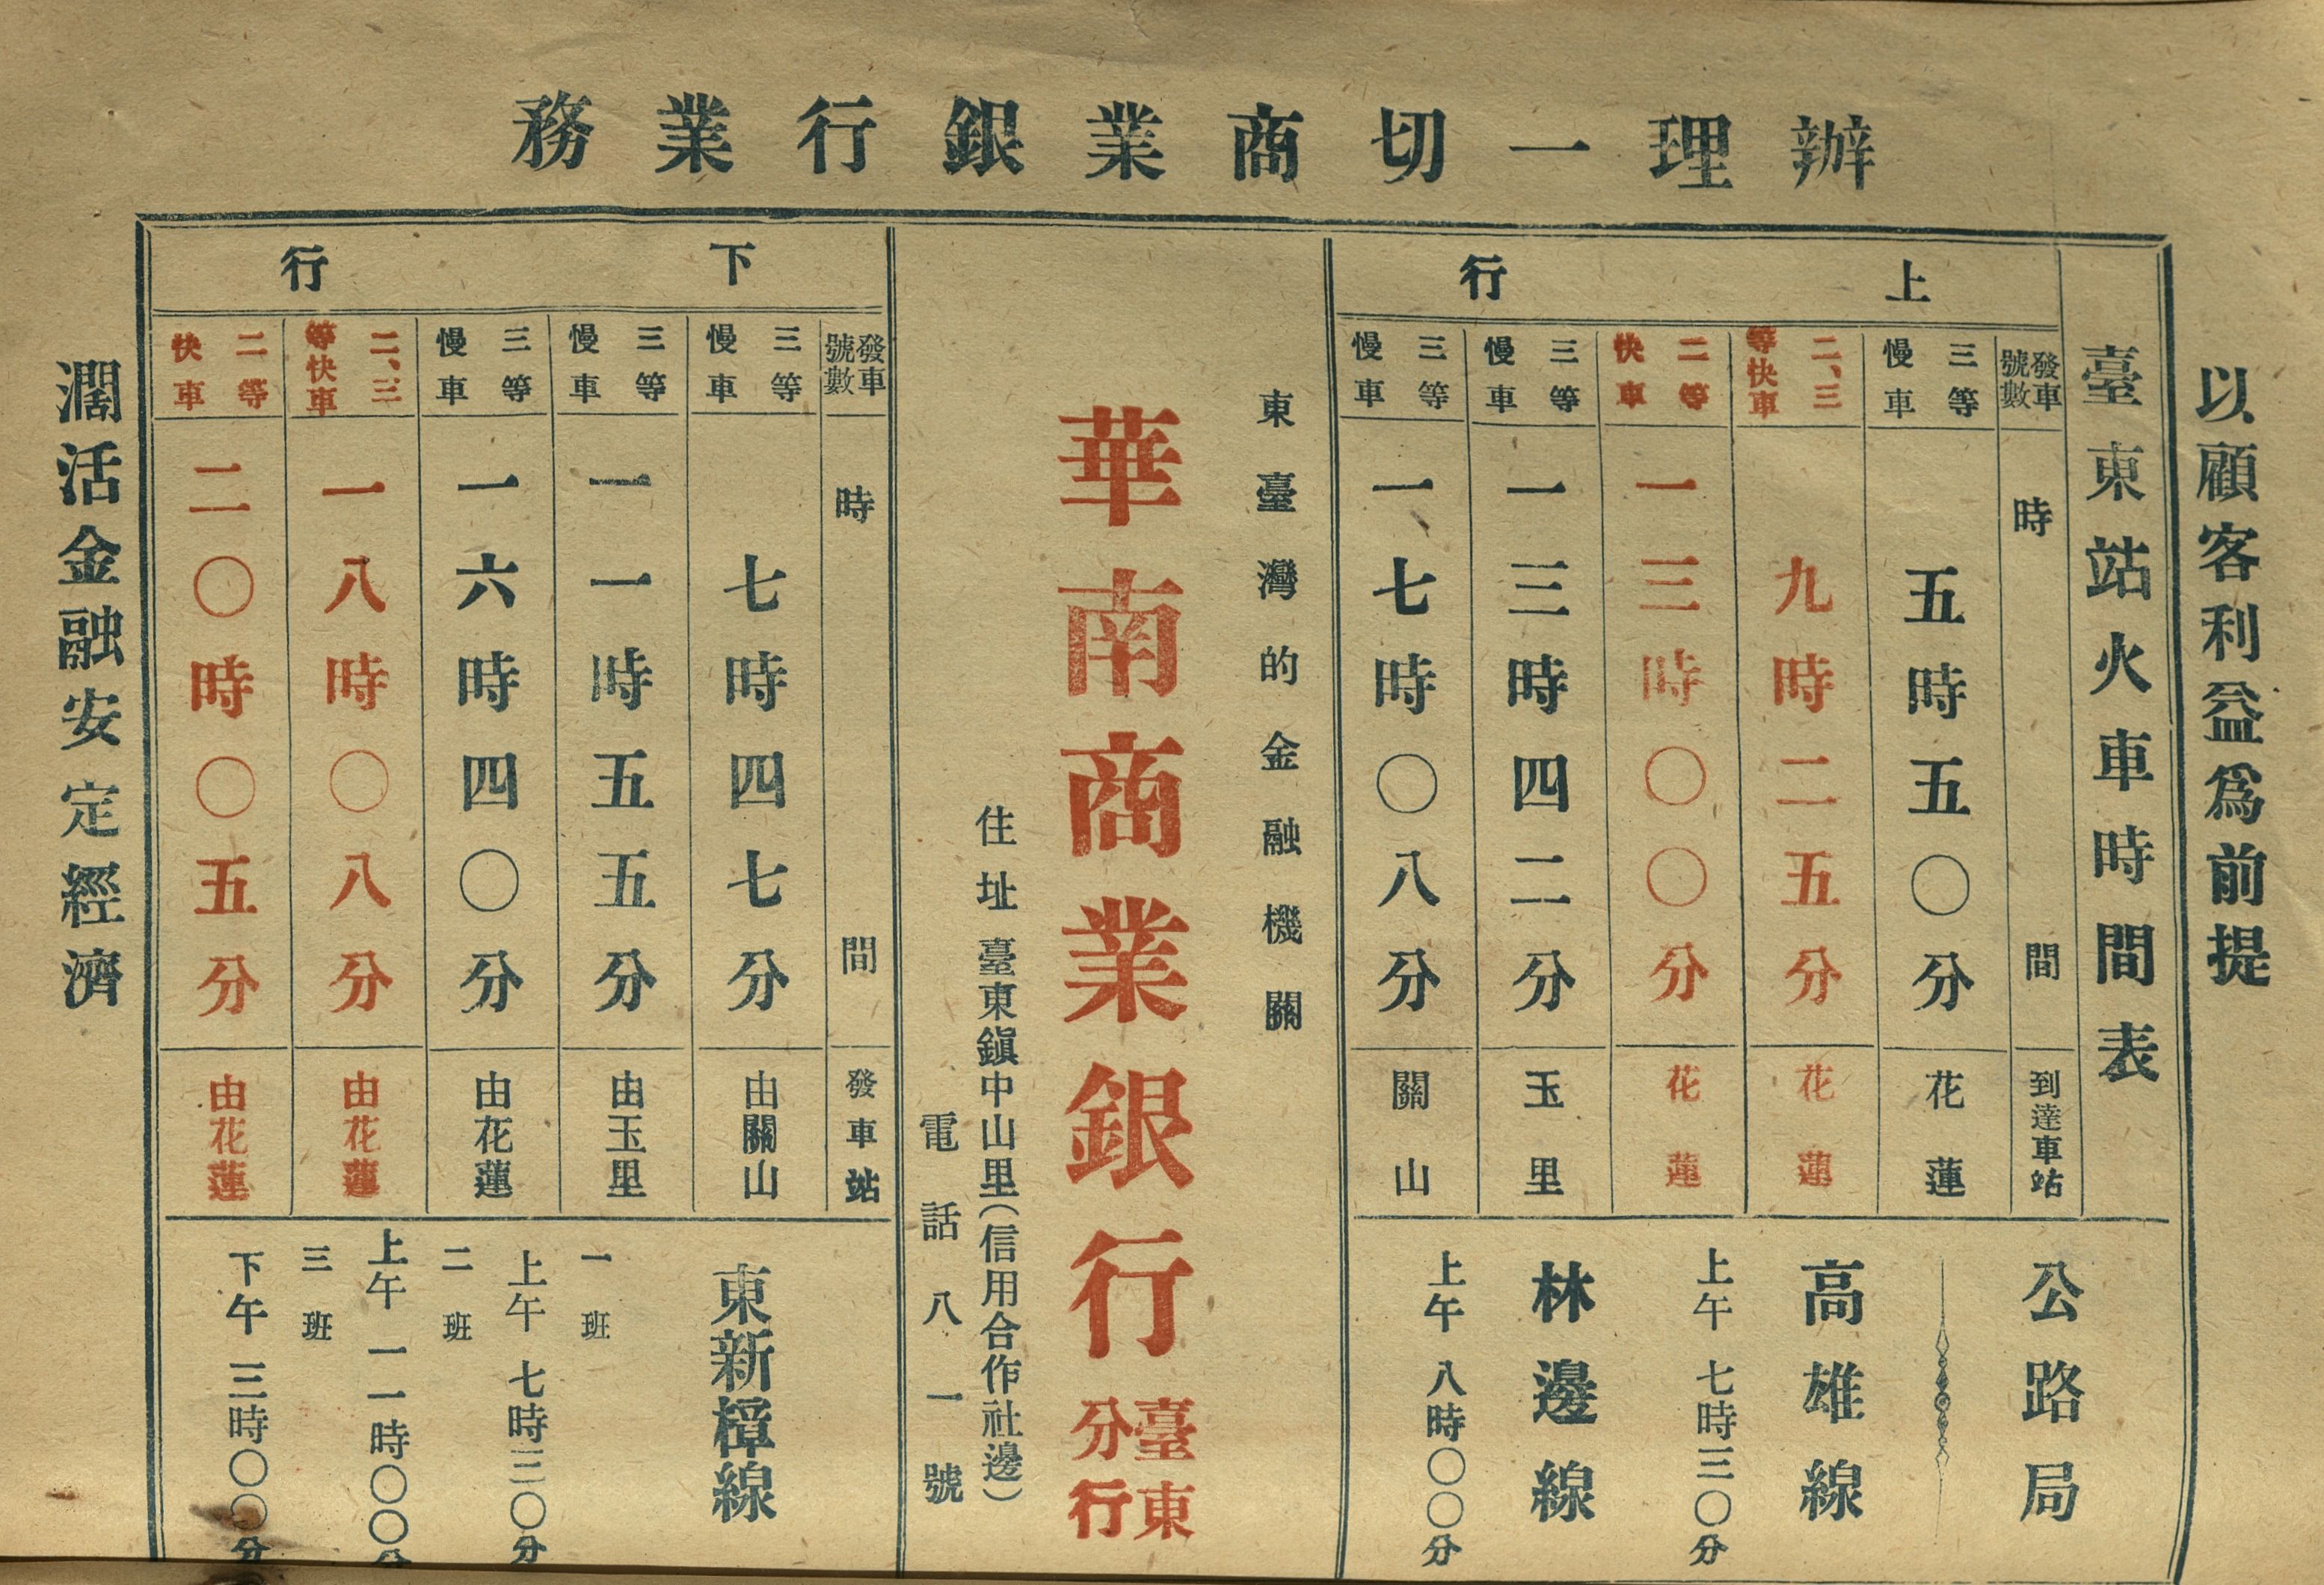 辦理一切商業銀行業務
以顧客利益爲前提
臺東站火車時間表
上行
發車號數
時間
到達車站
三等慢車
五時五〇分
花蓮
二、三等快車
九時二五分
花蓮
二等快車
一三時〇〇分
花蓮
三等慢車
一三時四二分
玉里
三等慢車
一七時〇八分
關山
公路局
高雄線
上午七時三〇分
林邊線
上午八時〇〇分
東臺灣的金融機關
華南商業銀行
臺東分行
住址臺東鎭中山里(信用合作社邊)
電話八一號
下行
發車號數
時間
發車站
三等慢車
七時四七分
由關山
三等慢車
一一時五五分
由玉里
三等慢車
一六時四〇分
由花蓮
二、三等快車
一八時〇八分
由花蓮
二等快車
二〇時〇五分
由花蓮
東新樟線
一班
上午七時三〇分
二班
上午一一時〇〇分
三班
下午三時〇〇分
濶活金融安定經濟